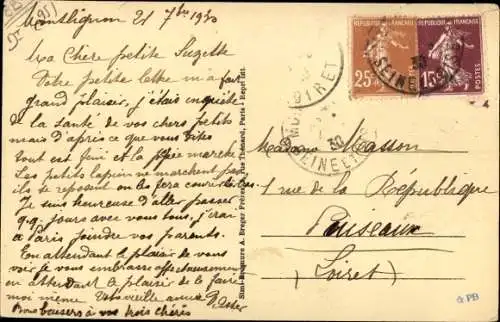 Montlignon 21 7bre 1930
Ma Chere petite Suzette
Votre petite lettre m'a fait
grand plaisir, j'étais inquiète
de la santé de vos chers petits
mais d'après ce que vous dites
tout est fini et la joie marche
Les petits lapins ne marchent pas
ils se reposent on les fera courir
Je suis heureuse d'aller passer
q.q. jours avec vous tous, j'irai
à Paris joindre vos parents.
En attendant le plaisir de vous
voir je vous embrasse affectueusement
en attendant le plaisir de le faire
moi même Votre vieille amie
Bons baisers à vos trois chéris
Simi-Bromure A. Breger Frères, rue Thénard, Paris - Reprod. Int.
RÉPUBLIQUE FRANÇAISE
25c
RÉPUBLIQUE FRANÇAISE
15c
POSTES
LOIRET
SEINE ET OISE
30
Madame Masson
1 rue de la République
Puiseaux
(Loiret)
PB